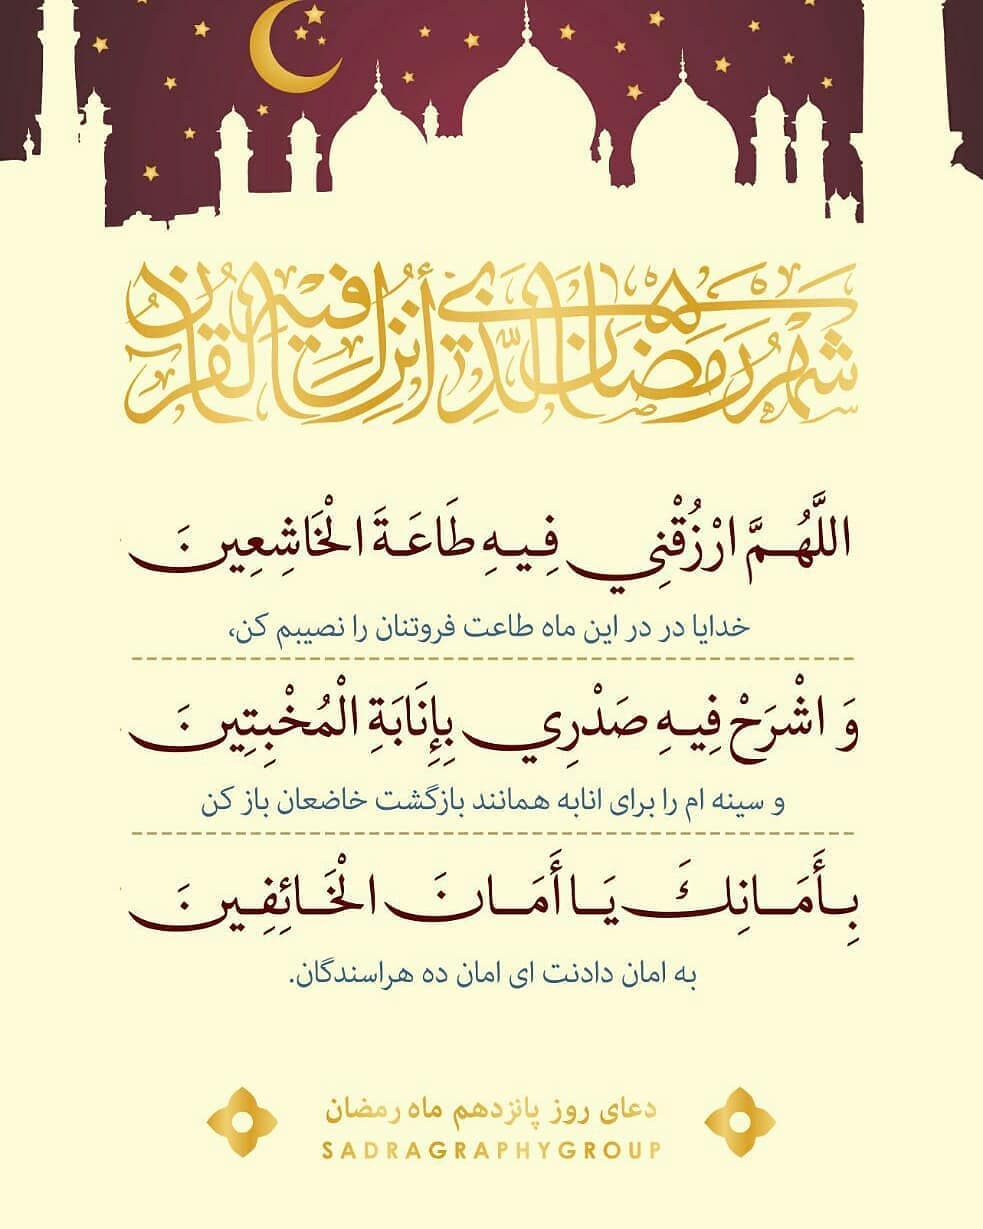 شهر رمضان الّذی أنزل فیه القرآن
اللَّهُمَّ ارْزُقْنِي فِيهِ طَاعَةَ الْخَاشِعِينَ
خدایا در در این ماه طاعت فروتنان را نصیبم کن،
وَ اشْرَحْ فِيهِ صَدْرِي بِإِنَابَةِ الْمُخْبِتِينَ
و سینه ام را برای انابه همانند بازگشت خاضعان باز کن
بِأَمَانِكَ يَا أَمَانَ الْخَائِفِينَ
به امان دادنت ای امان ده هراسندگان.
دعای روز پانزدهم ماه رمضان
SADRAGRAPHYGROUP